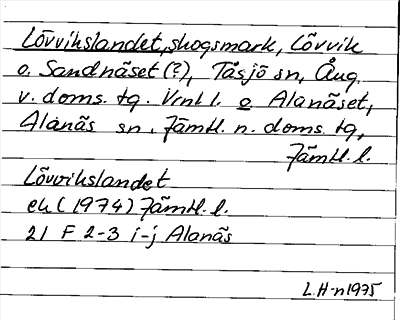 Lövvikslandet, skogsmark, Lövvik
o. Sandnäset (?), Tåsjö sn, Ång.
v. doms. tg. Vrnl l. o Alanäset,
Alanäs sn, Jämtl. n. doms. tg,
Jämtl. l.
Lövvikslandet
ek (1974) Jämtl. l.
21 F 2-3 i-j Alanäs
L.H-n 1975